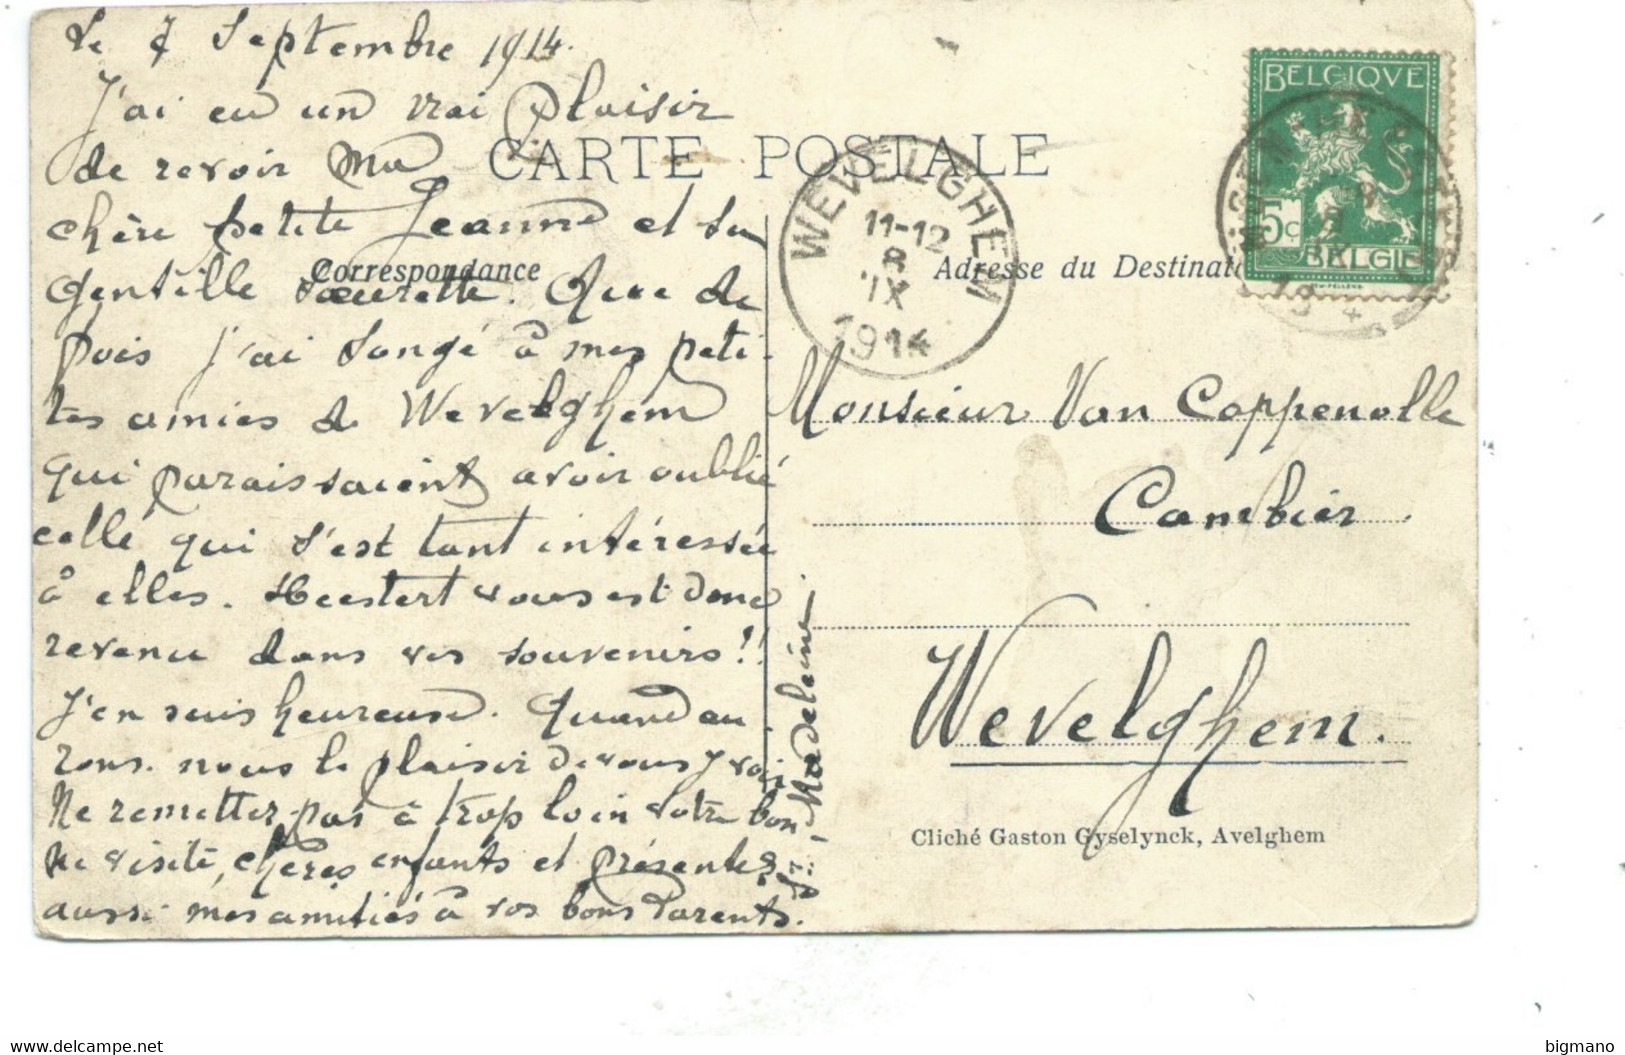 Le 7 Septembre 1914.
J'ai eu un vrai plaisir
de revoir Ma
chère petite Jeanne et sa
gentille sœurette. Que de
puis j'ai songé à mes peti-
tes amies de Wevelghem
qui paraissaient avoir oublié
celle qui s'est tant intéressée
à elles. Heestert vous est donc
revenu dans vos souvenirs!!
J'en suis heureuse. Quand au-
rons-nous le plaisir de vous y voir
Ne remettez pas à trop loin votre bon-
ne visite, chères enfants et présentez
aussi mes amitiés à vos bons Parents.
Madeleine
CARTE POSTALE
Correspondance
Adresse du Destinat
WEVELGHEM
11-12
8
IX
1914
BELGIQVE
5c
BELGIE
Monsieur Van Coppenolle
Cambier
Wevelghem.
Cliché Gaston Gyselynck, Avelghem
www.delcampe.net
bigmano